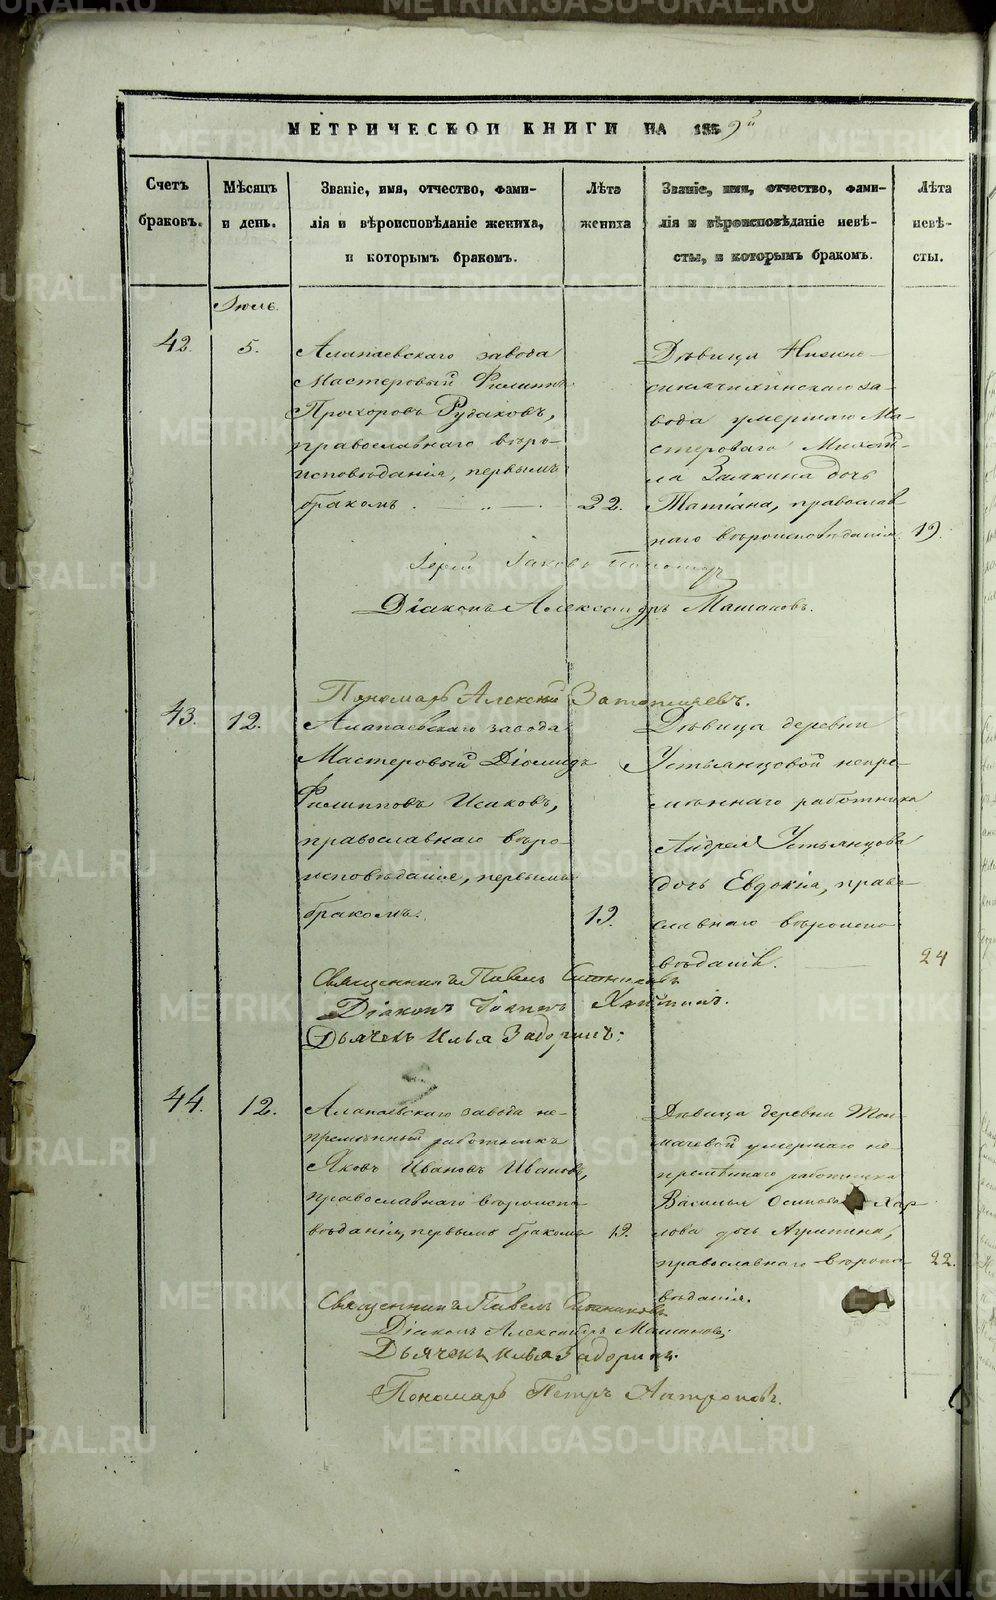 МЕТРИЧЕСКОЙ КНИГИ НА 1859й
Счетъ браковъ.
Мѣсяцъ и день.
Званіе, имя, отчество, фами-
лія и вѣроисповѣданіе жениха,
и которымъ бракомъ.
Лѣта жениха
Званіе, имя, отчество, фами-
лія и вѣроисповѣданіе невѣ-
сты, и которымъ бракомъ.
Лѣта невѣ-
сты.
Іюль.
42. 5.
Алапаевскаго завода
Мастеровый Филиппъ
Прохоровъ Рудаковъ,
православнаго вѣро-
исповѣданія, первымъ
бракомъ
22.
Дѣвица Нижне-
синячихинскаго за-
вода умершаго Ма-
стероваго Михай-
ла Заякина дочь
Татіана, православ
наго вѣроисповѣданія
19.
Іерей Іаковъ
Діаконъ Александръ Машановъ.
Пономарь Алексѣй
43. 12.
Алапаевскаго завода
Мастеровый Діомидъ
Филипповъ Исаковъ,
православнаго вѣро-
исповѣданія, первымъ
бракомъ.
19.
Дѣвица деревни
Устьянцовой непре-
мѣннаго работника
Андрея Устьянцова
дочь Евдокія, право-
славнаго вѣроиспо-
вѣданія.
24
Священникъ Павелъ Ситниковъ
Діаконъ Іоаннъ
Дьячекъ Илья Задоринъ.
44. 12.
Алапаевскаго завода не-
премѣнный работникъ
Яковъ Ивановъ Ивановъ,
православнаго вѣроиспо-
вѣданія, первымъ бракомъ
19.
Дѣвица деревни Тол-
мачевой умершаго не-
премѣннаго работника
Василья Осипова Хар
лова дочь Агриппина,
православнаго вѣроиспо-
вѣданія.
22.
Священникъ Павелъ Ситниковъ
Діаконъ Александръ Машановъ.
Дьячекъ Илья Задоринъ.
Пономарь Петръ Антроповъ.
METRIKI.GASO-URAL.RU